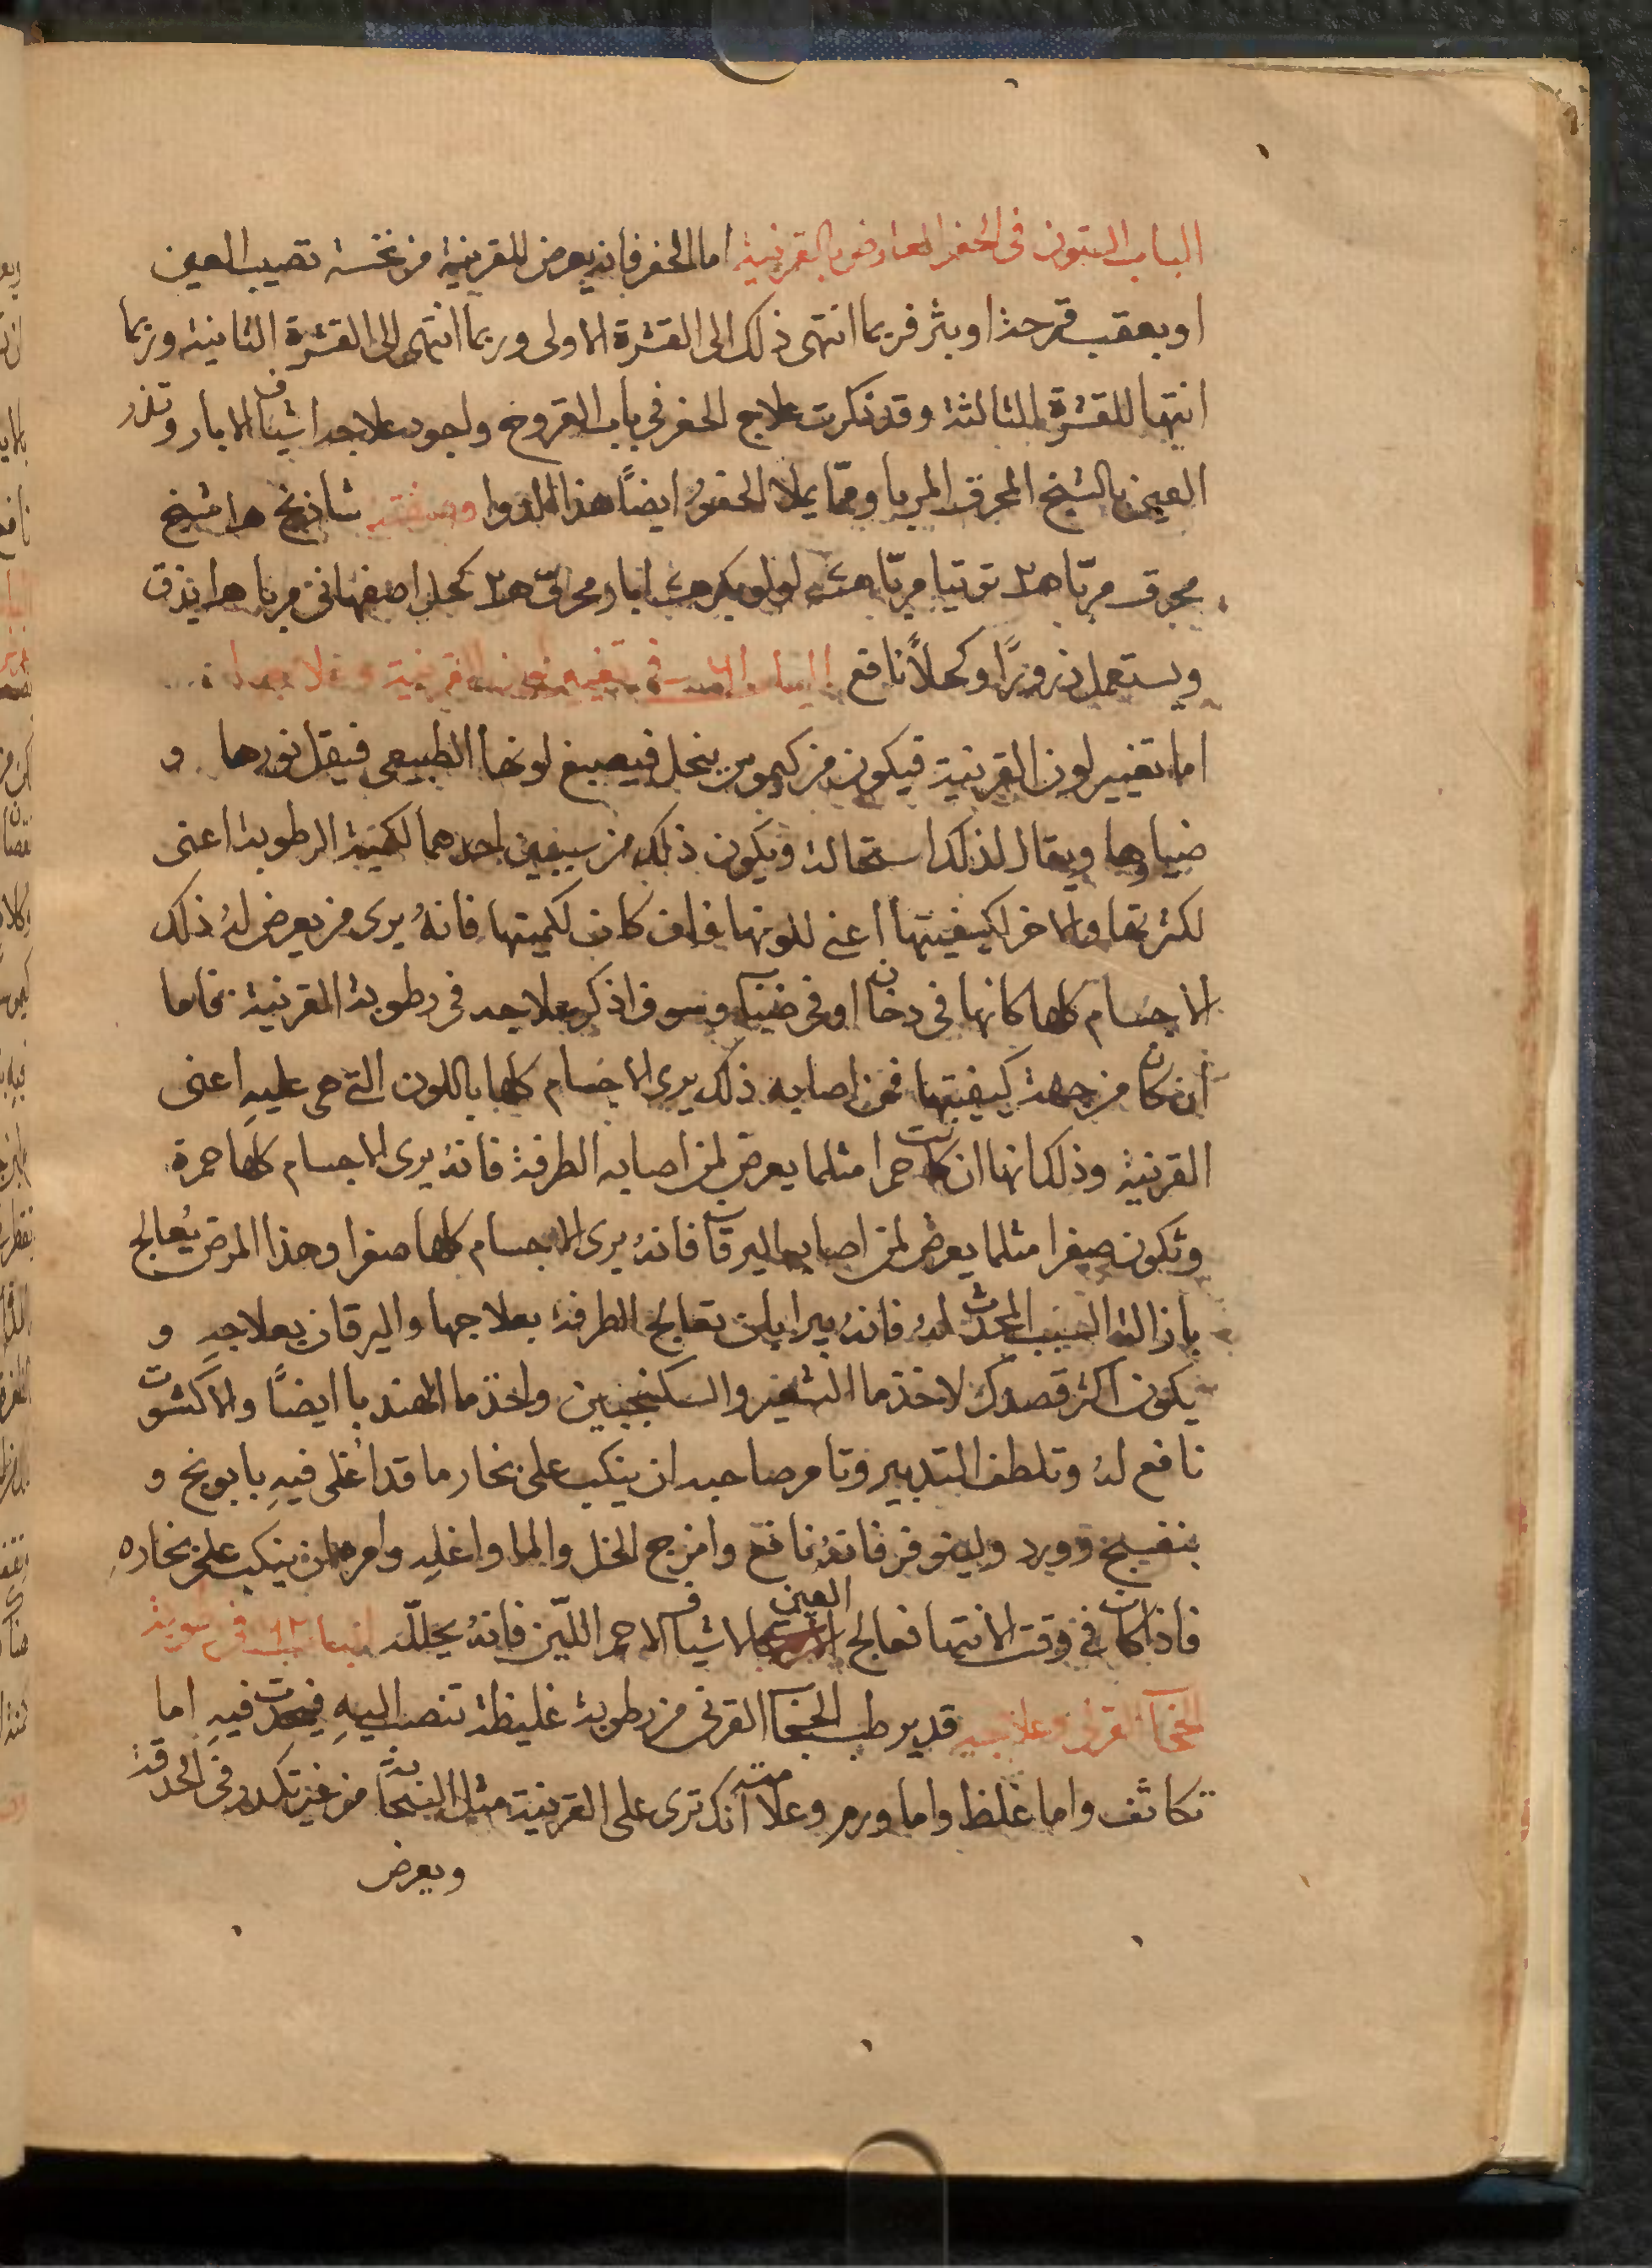 الباب الستون فى الحفر العارض بالقرنية اما الحفر فانه يعرض للقرنية من نخسة تصيب العين
او بعقب قرحة او بثر فربما انتهى ذلك الى القشرة الاولى وربما انتهى الى القشرة الثانية وربما
انتها للقشرة الثالثة وقد ذكرت علاج الحفر فى باب القروح واجود علاجه اشياف الابار وتذر
العين بالشيح المحرق المربا ومما يملا الحفور ايضًا هذا الدوا وصفته شاذنج شيح
محرق مربّا توتيا مربّا لولو ابار محرق كحل اصفهانى مربا يدق
ويستعمل ذرورًا وكحلاً نافع الباب فى تغيير لون القرنية وعلاجه
اما تغيير لون القرنية فيكون من كيموس ينحل فيصبغ لونها الطبيعى فيقل نورها و
ضياوها ويقال لذلك استحالة ويكون ذلك من سببين احدهما لكمية الرطوبة اعنى
لكثرتها والاخر لكيفيتها اعنى للونها فان كان لكميتها فانهُ يرى من يعرض لهُ ذلك
الاجسام كلها كانها فى دخان او فى ضباب وسوف اذكر علاجه فى رطوبة القرنية فاما
ان كان من جهة كيفيتها فمن اصابه ذلك يرى الاجسام كلها باللون التى هى عليهِ اعنى
القرنية وذلك انها ان كانت حمرا مثلما يعرض لمن اصابه الطرفة فانهُ يرى الاجسام كلها حمرة
وتكون صفرا مثلما يعرض لمن اصابه اليرقان فانهُ يرى الاجسام كلها صفرا وهذا المرض يُعالج
بازالة السبب المحدث لهُ فانهُ يبرا بان تعالج الطرفة بعلاجها واليرقان بعلاجهِ و
يكون اكثر قصدك لاخذ ما الشعير والسكنجبين واخذ ما الهندبا ايضًا والاكشوت
نافع لهُ وتلطف التدبير وتامر صاحبه ان ينكب على بخار ما قد اُغلى فيهِ بابونج و
بنفسج وورد ولينوفر فانهُ نافع وامزج الخل والما واغليه وامرهم ان ينكب على بخارهِ
فاذا كان فى وقت الانتها فعالج العين بالاشياف الاحمر اللين فانهُ يحلله الباب فى رطوبة
الحجاب القرنى وعلاجه قد يرطب الحجاب القرنى من رطوبة غليظة تنصب اليهِ فيحدث فيهِ اما
تكاثف واما غلظ واما ورم وعلامته انك ترى على القرنية مثل السحابة من غير تكدر فى الحدقة
ويعرض